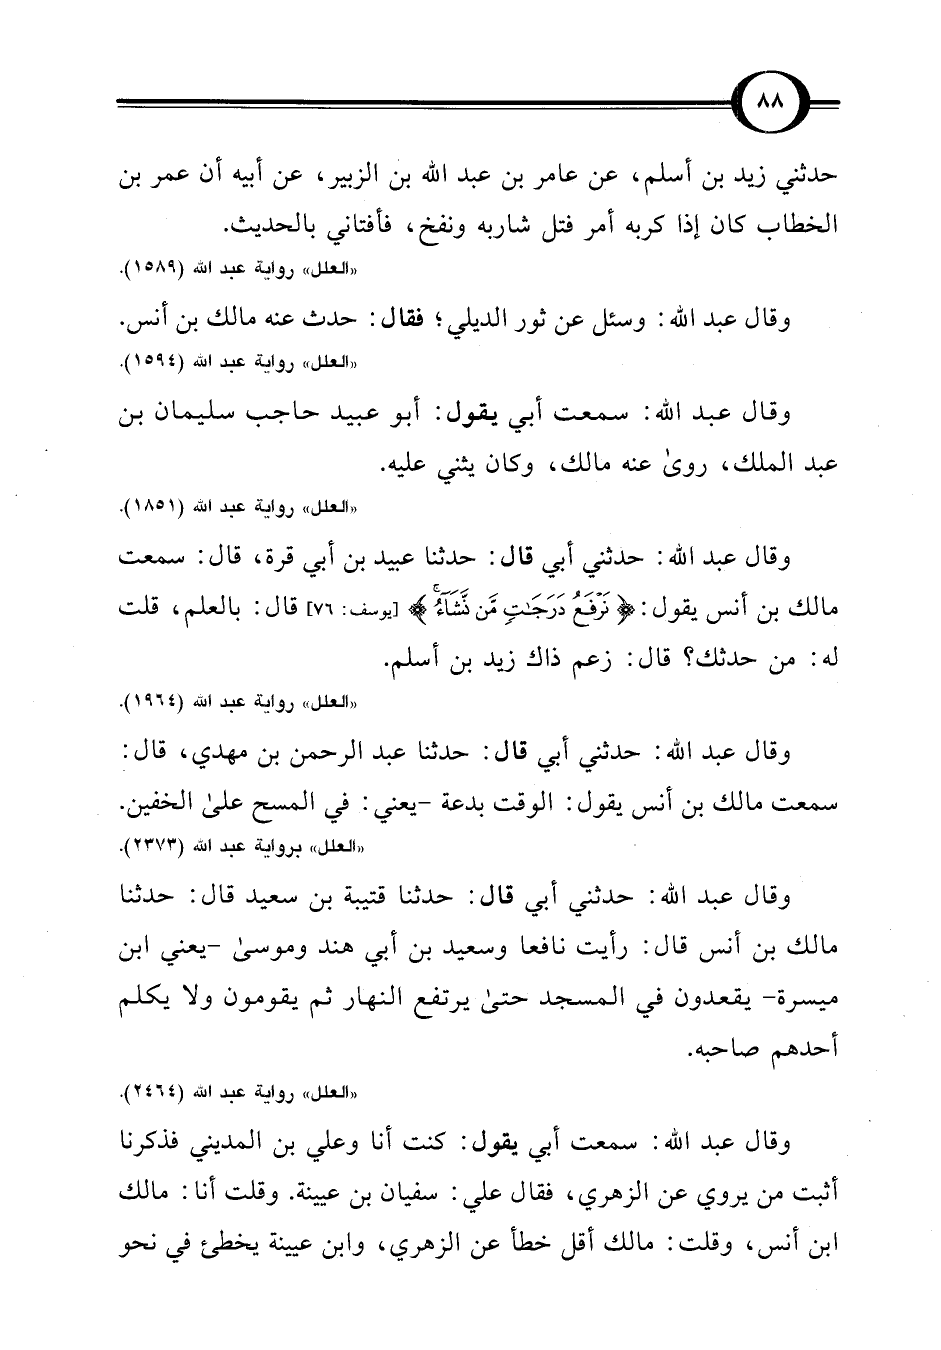 ٨٨
حدثني زيد بن أسلم، عن عامر بن عبد الله بن الزبير، عن أبيه أن عمر بن
الخطاب كان إذا كربه أمر فتل شاربه ونفخ، فأفتاني بالحديث.
«العلل» رواية عبد الله (١٥٨٩).
وقال عبد الله: وسئل عن ثور الديلي؛ فقال: حدث عنه مالك بن أنس.
«العلل» رواية عبد الله (١٥٩٤).
وقال عبد الله: سمعت أبي يقول: أبو عبيد حاجب سليمان بن
عبد الملك، روىٰ عنه مالك، وكان يثني عليه.
«العلل» رواية عبد الله (١٨٥١).
وقال عبد الله: حدثني أبي قال: حدثنا عبيد بن أبي قرة، قال: سمعت
مالك بن أنس يقول: ﴿نَرْفَعُ دَرَجَٰتٍ مَّن نَّشَآءُۚ﴾ [يوسف: ٧٦] قال: بالعلم، قلت
له: من حدثك؟ قال: زعم ذاك زيد بن أسلم.
«العلل» رواية عبد الله (١٩٦٤).
وقال عبد الله: حدثني أبي قال: حدثنا عبد الرحمن بن مهدي، قال:
سمعت مالك بن أنس يقول: الوقت بدعة -يعني: في المسح علىٰ الخفين.
«العلل» برواية عبد الله (٢٣٧٣).
وقال عبد الله: حدثني أبي قال: حدثنا قتيبة بن سعيد قال: حدثنا
مالك بن أنس قال: رأيت نافعا وسعيد بن أبي هند وموسىٰ -يعني ابن
ميسرة- يقعدون في المسجد حتىٰ يرتفع النهار ثم يقومون ولا يكلم
أحدهم صاحبه.
«العلل» رواية عبد الله (٢٤٦٤).
وقال عبد الله: سمعت أبي يقول: كنت أنا وعلي بن المديني فذكرنا
أثبت من يروي عن الزهري، فقال علي: سفيان بن عيينة. وقلت أنا: مالك
ابن أنس، وقلت: مالك أقل خطأ عن الزهري، وابن عيينة يخطئ في نحو